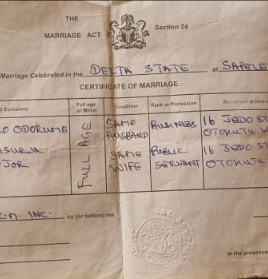 THE
MARRIAGE ACT
Section 24
Marriage Celebrated in the DELTA STATE at SAPELE
CERTIFICATE OF MARRIAGE
Surnames Full age or Minor Condition Rank or Profession Residence at
ODORUME FULL AGE SAME HUSBAND BUSINESS 16 JEDO ST
OTOKUTU
SAME WIFE PUBLIC SERVANT 16 JEDO ST
OTOKUTU
INC. by (or before) me
In the presence